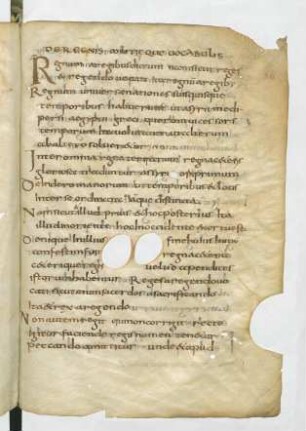 DE REGNIS MILITIEQUE VOCABULIS
Regnum a regibus dictum nam sicut reges
a regendo vocati ita regnum a regibus
Regnum universae nationes suis quisque
temporibus habuerunt ut assirii medi
persi aegyptii greci quorum vices sors
temporum ita volutavit ut alterum
ab altero solveretur
Inter omnia regna terrarum regna ceteris
gloriosa traduntur assiriorum primum
Deinde romanorum ut temporibus et locis
inter se ordinata atque distincta
Nam sicut illud prius et hoc posterius ita
illud in oriente hoc in occidente exortum est
Denique in illius fine huius initium
confestim fuit regna cetera
ceterique reges velut appendices
istorum habentur Reges a regendo vocati
sicut enim sacerdos a sacrificando
ita et rex a regendo
Non autem regit qui non corrigit recte
igitur faciendo regis nomen tenetur
peccando amittitur unde et apud